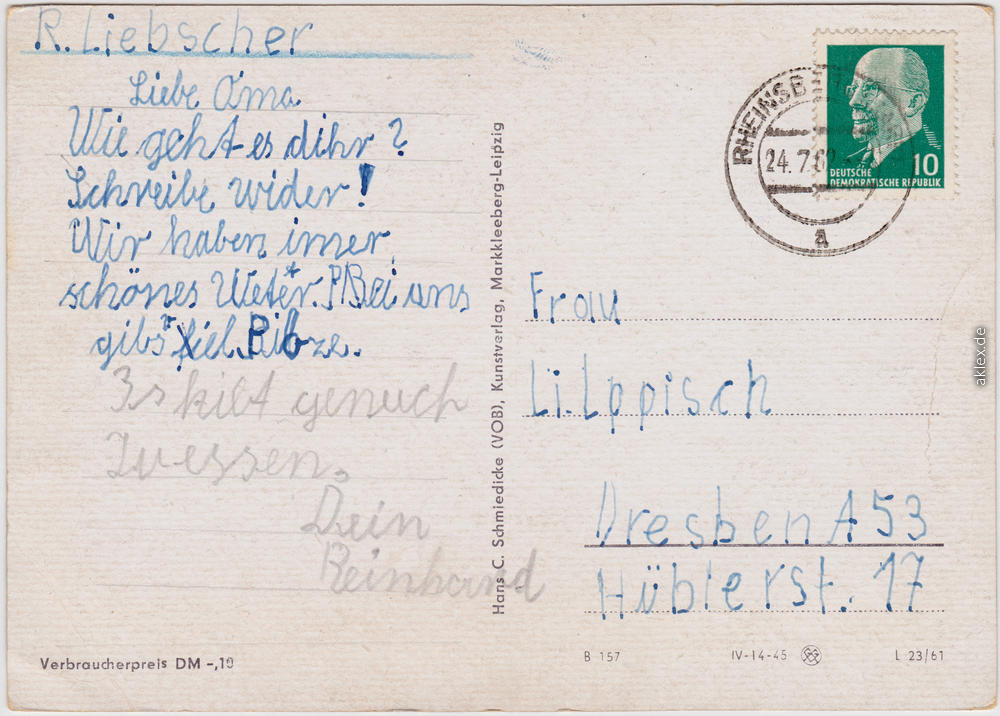 R. Liebscher
Liebe Oma
Wie geht es dihr?
Schreibe wider!
Wir haben imer
schönes Weter. Bei uns
gibs fiel Pilze.
Dein
Reinhard
Hans C. Schmiedicke (VOB), Kunstverlag, Markkleeberg-Leipzig
RHEINSB
24.7.6
a
10
DEUTSCHE
DEMOKRATISCHE REPUBLIK
Frau
Li. Lppisch
Dresben A 53
Hüblerst. 17
Verbraucherpreis DM -,10
B 157
IV-14-45
L 23/61
aklex.de